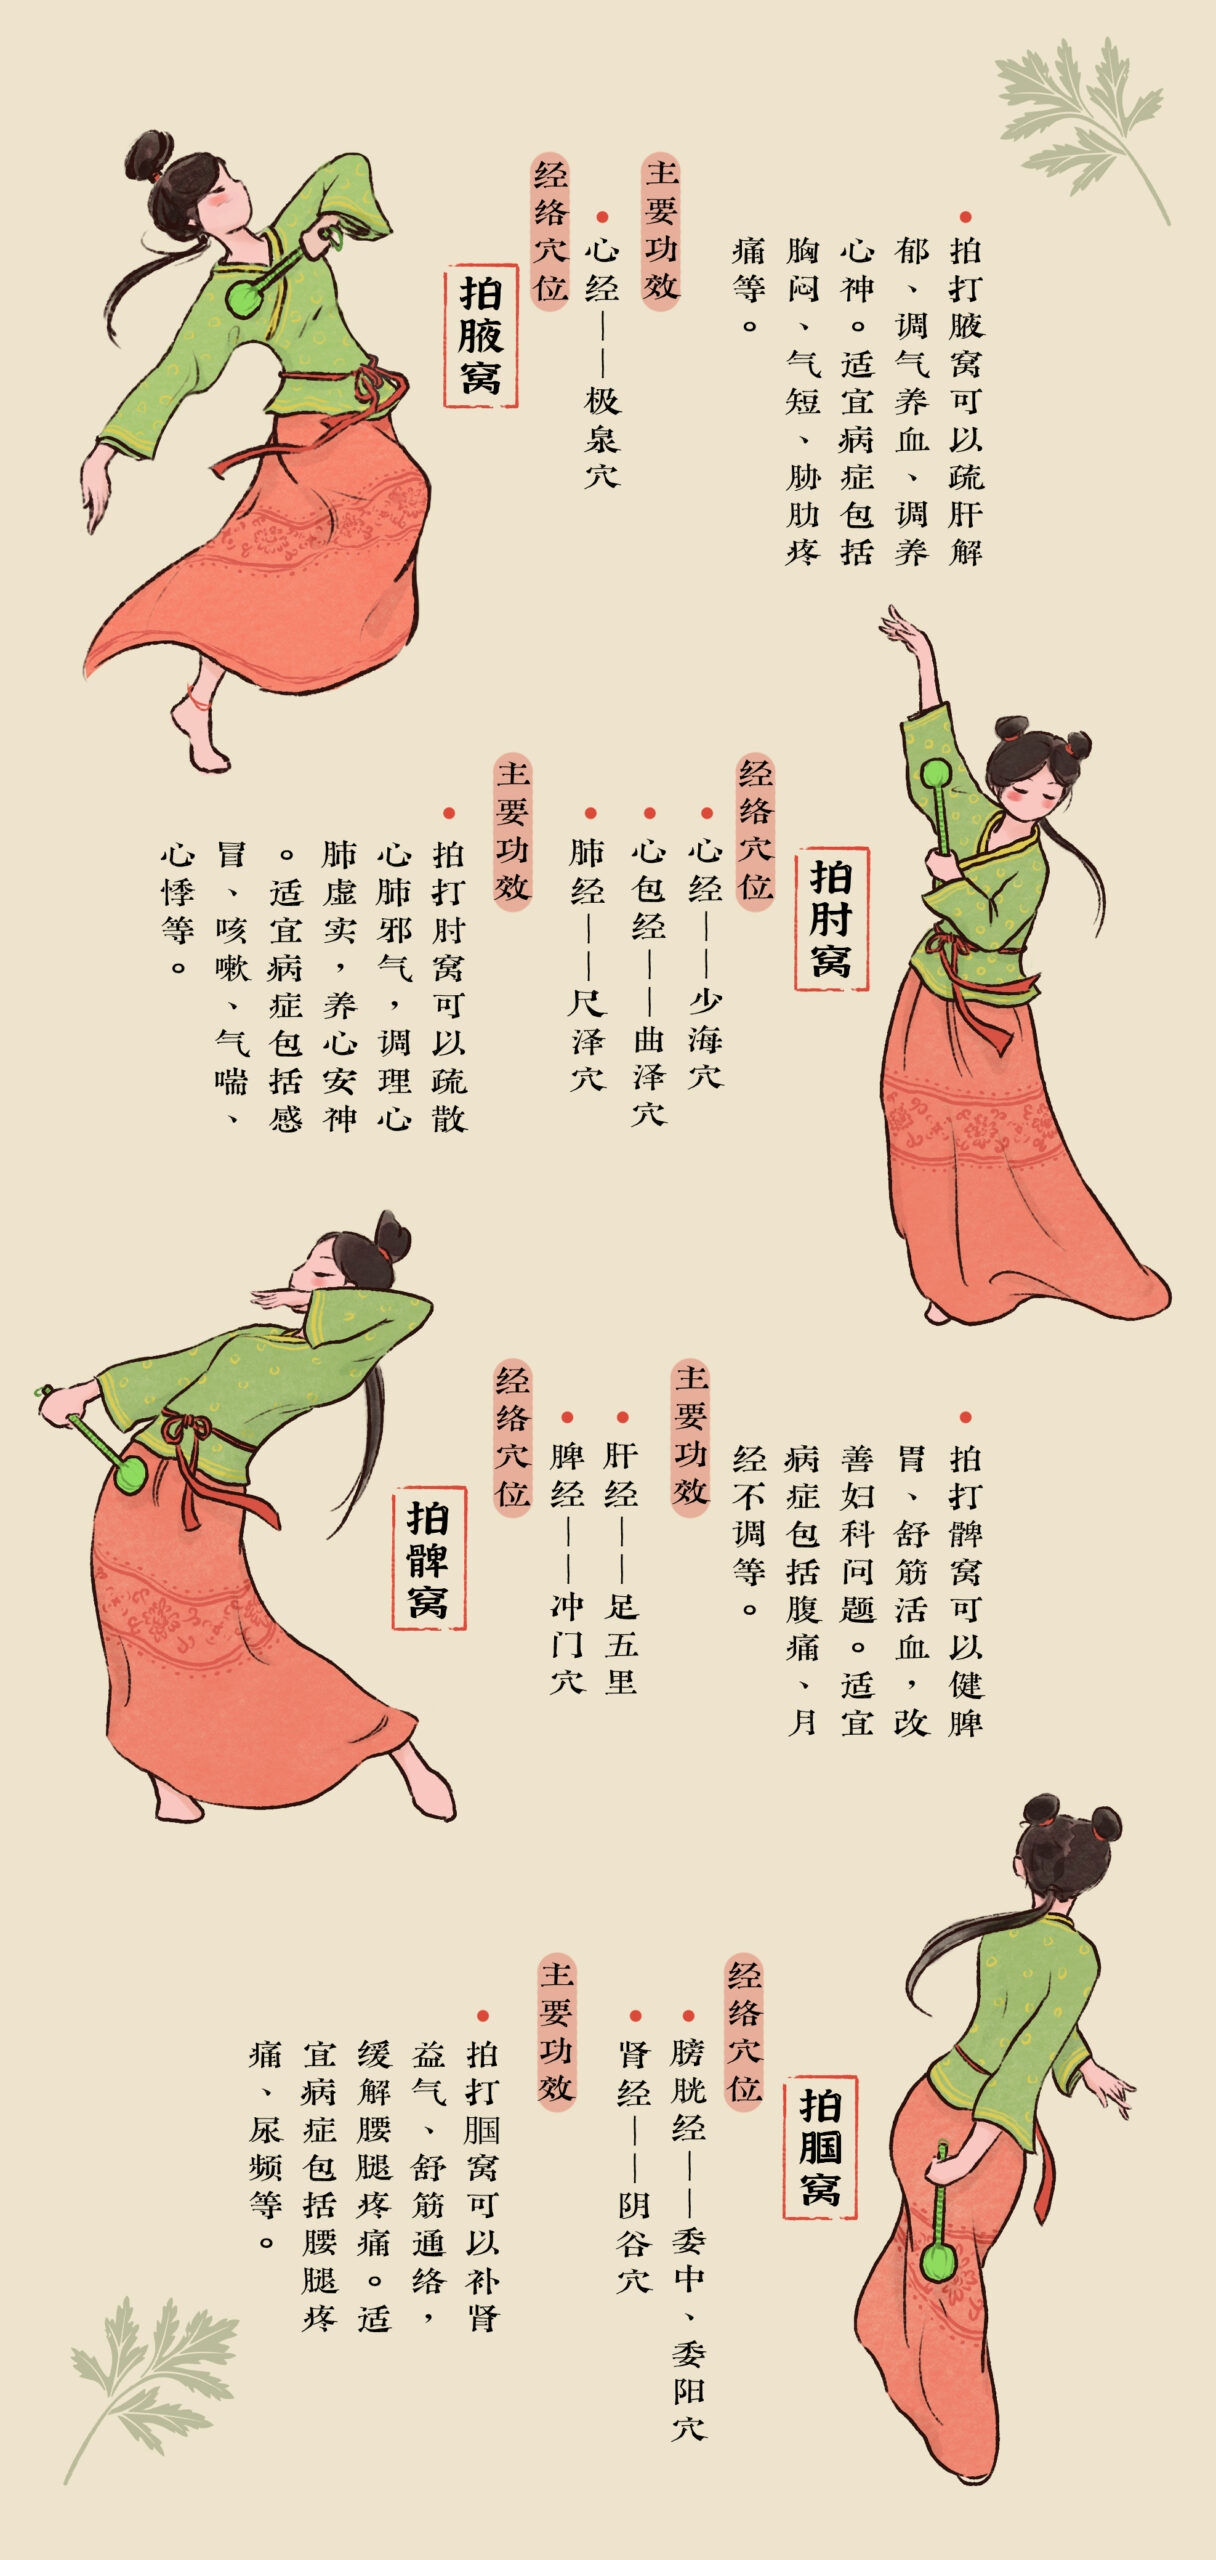 拍腋窝
经络穴位
心经——极泉穴
主要功效
拍打腋窝可以疏肝解
郁、调气养血、调养
心神。适宜病症包括
胸闷、气短、胁肋疼
痛等。
拍肘窝
经络穴位
心经——少海穴
心包经——曲泽穴
肺经——尺泽穴
主要功效
拍打肘窝可以疏散
心肺邪气，调理心
肺虚实，养心安神
。适宜病症包括感
冒、咳嗽、气喘、
心悸等。
拍髀窝
经络穴位
肝经——足五里
脾经——冲门穴
主要功效
拍打髀窝可以健脾
胃、舒筋活血，改
善妇科问题。适宜
病症包括腹痛、月
经不调等。
拍腘窝
经络穴位
膀胱经——委中、委阳穴
肾经——阴谷穴
主要功效
拍打腘窝可以补肾
益气、舒筋通络，
缓解腰腿疼痛。适
宜病症包括腰腿疼
痛、尿频等。